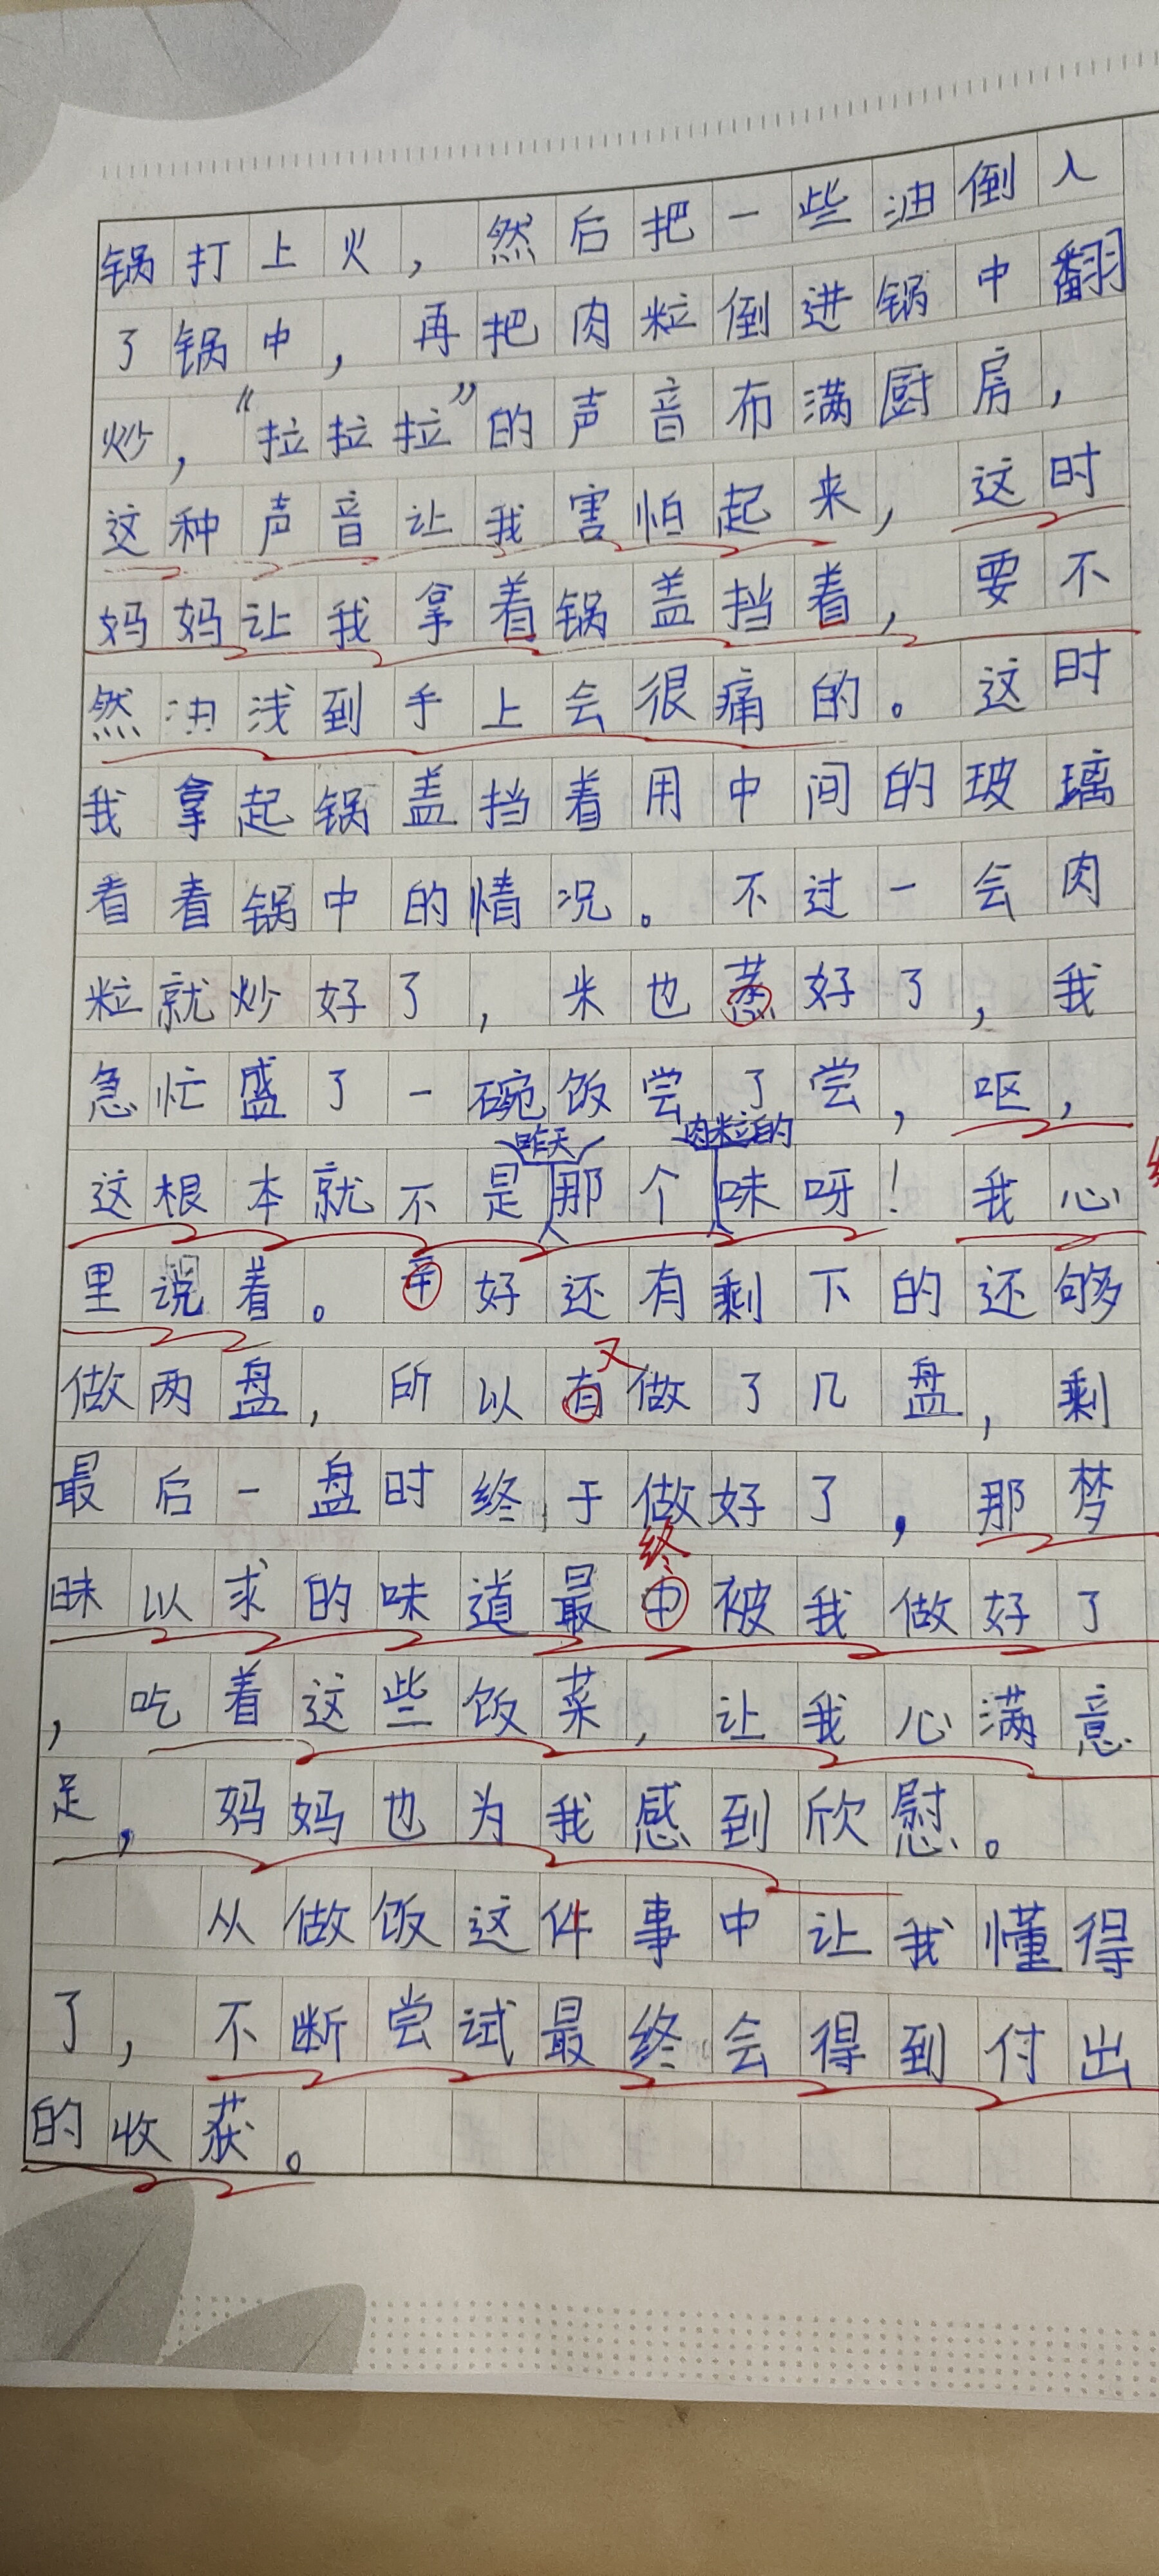 锅打上火，然后把一些油倒入
了锅中，再把肉粒倒进锅中翻
炒，“拉拉拉”的声音布满厨房，
这种声音让我害怕起来，这时
妈妈让我拿着锅盖挡着，要不
然油浅到手上会很痛的。这时
我拿起锅盖挡着用中间的玻璃
看着锅中的情况。不过一会肉
粒就炒好了，米也蒸好了，我
急忙盛了一碗饭尝了尝，呕，
昨天 肉粒的
这根本就不是那个味呀！我心
里说着。幸好还有剩下的还够
又
做两盘，所以有做了几盘，剩
最后一盘时终于做好了，那梦
终
昧以求的味道最中被我做好了
，吃着这些饭菜，让我心满意
足，妈妈也为我感到欣慰。
从做饭这件事中让我懂得
了，不断尝试最终会得到付出
的收获。